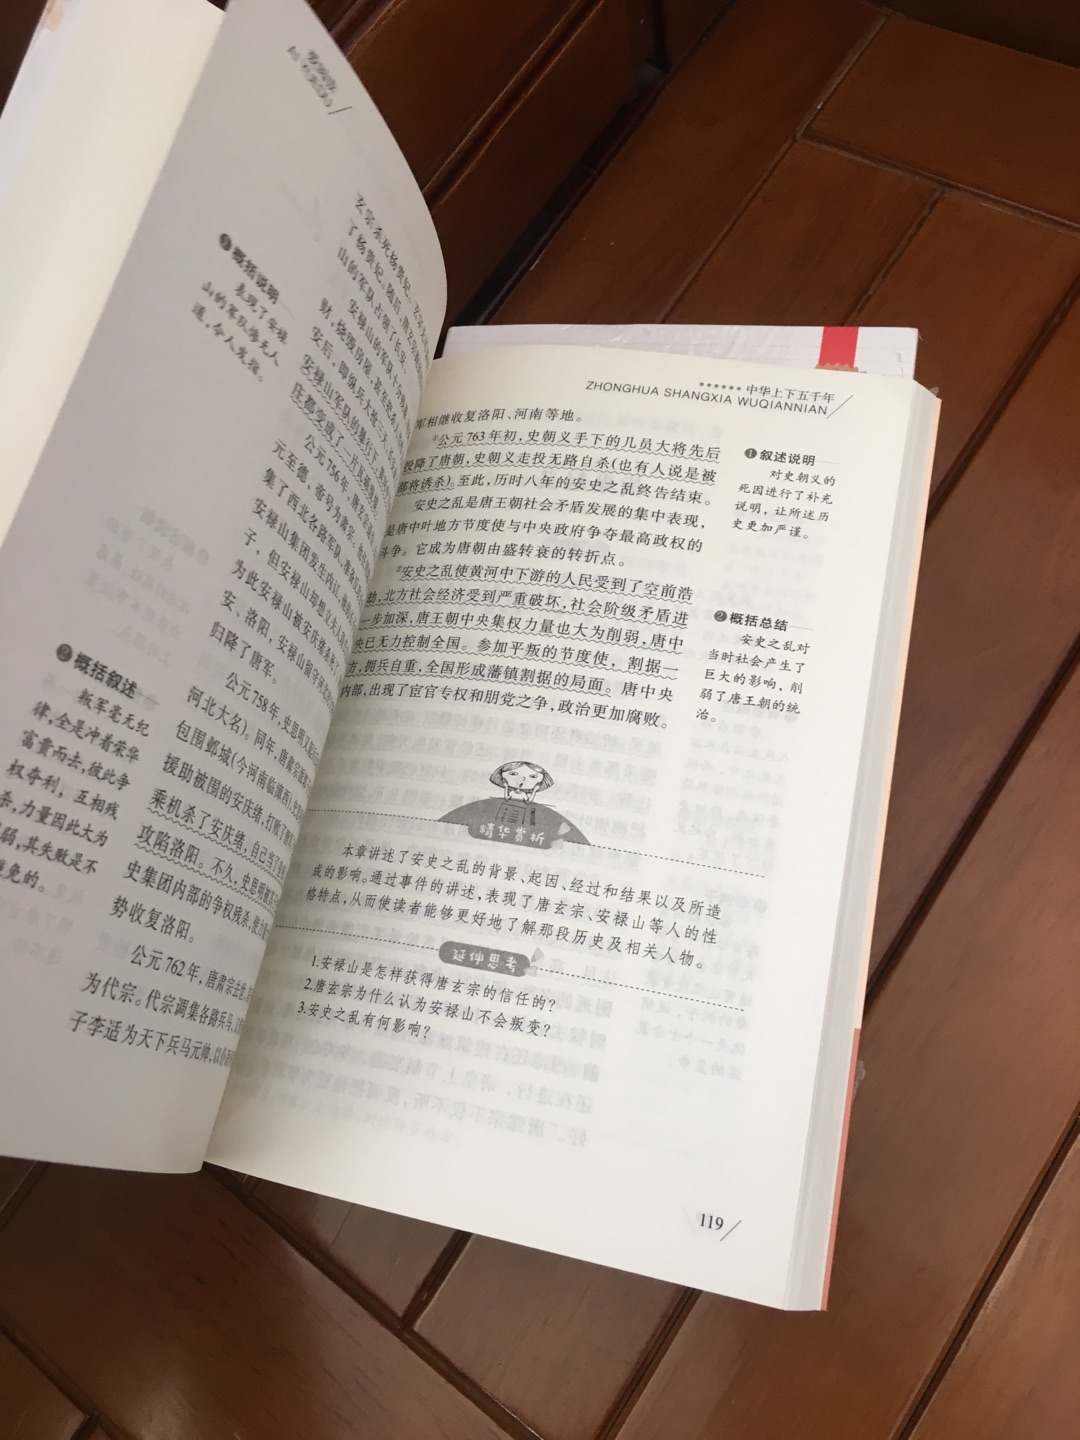 爱阅读
AI YUEDU
玄宗杀死杨贵妃。玄宗无
了杨贵妃。随后，唐玄宗
山的军队占领了长安。
安禄山的军队十分
财，烧毁房屋，甚至
安后，即纵兵大抢三天，
安禄山军队的暴行下，
庄都变成了一片
公元756年，唐
元至德，帝号为肃宗。
集了西北各路军队，准备
安禄山集团发生内讧，
子，但安禄山却想立
为此安禄山被安庆绪杀死
安、洛阳，安禄山留守
归降了唐军。
公元758年，史思明
河北大名)。同年，唐肃宗
包围邺城(今河南临漳西)，
援助被围的安庆绪，打败了
乘机杀了安庆绪，自己当了
攻陷洛阳。不久，史思明被
史集团内部的争权残杀，使力
势收复洛阳。
公元762年，唐肃宗去世，
为代宗。代宗调集各路兵马，
子李适为天下兵马元帅，以
❶概括说明
表现了安禄
山的军队惨无人
道，令人发指。
❷概括叙述
叛军毫无纪
律，全是冲着荣华
富贵而去，彼此争
权夺利，互相残
杀，力量因此大为
弱，其失败是不
免的。
中华上下五千年
ZHONGHUA SHANGXIA WUQIANNIAN
军相继收复洛阳、河南等地。
①公元763年初，史朝义手下的几员大将先后
投降了唐朝，史朝义走投无路自杀(也有人说是被
部将诱杀)。至此，历时八年的安史之乱终告结束。
安史之乱是唐王朝社会矛盾发展的集中表现，
是唐中叶地方节度使与中央政府争夺最高政权的
斗争。它成为唐朝由盛转衰的转折点。
②安史之乱使黄河中下游的人民受到了空前浩
劫，北方社会经济受到严重破坏，社会阶级矛盾进
一步加深，唐王朝中央集权力量也大为削弱，唐中
央已无力控制全国。参加平叛的节度使，割据一
方，拥兵自重，全国形成藩镇割据的局面。唐中央
内部，出现了宦官专权和朋党之争，政治更加腐败。
❶叙述说明
对史朝义的
死因进行了补充
说明，让所述历
史更加严谨。
❷概括总结
安史之乱对
当时社会产生了
巨大的影响，削
弱了唐王朝的统
治。
精华赏析
本章讲述了安史之乱的背景、起因、经过和结果以及所造
成的影响。通过事件的讲述，表现了唐玄宗、安禄山等人的性
格特点，从而使读者能够更好地了解那段历史及相关人物。
延伸思考
1.安禄山是怎样获得唐玄宗的信任的？
2.唐玄宗为什么认为安禄山不会叛变？
3.安史之乱有何影响？
119